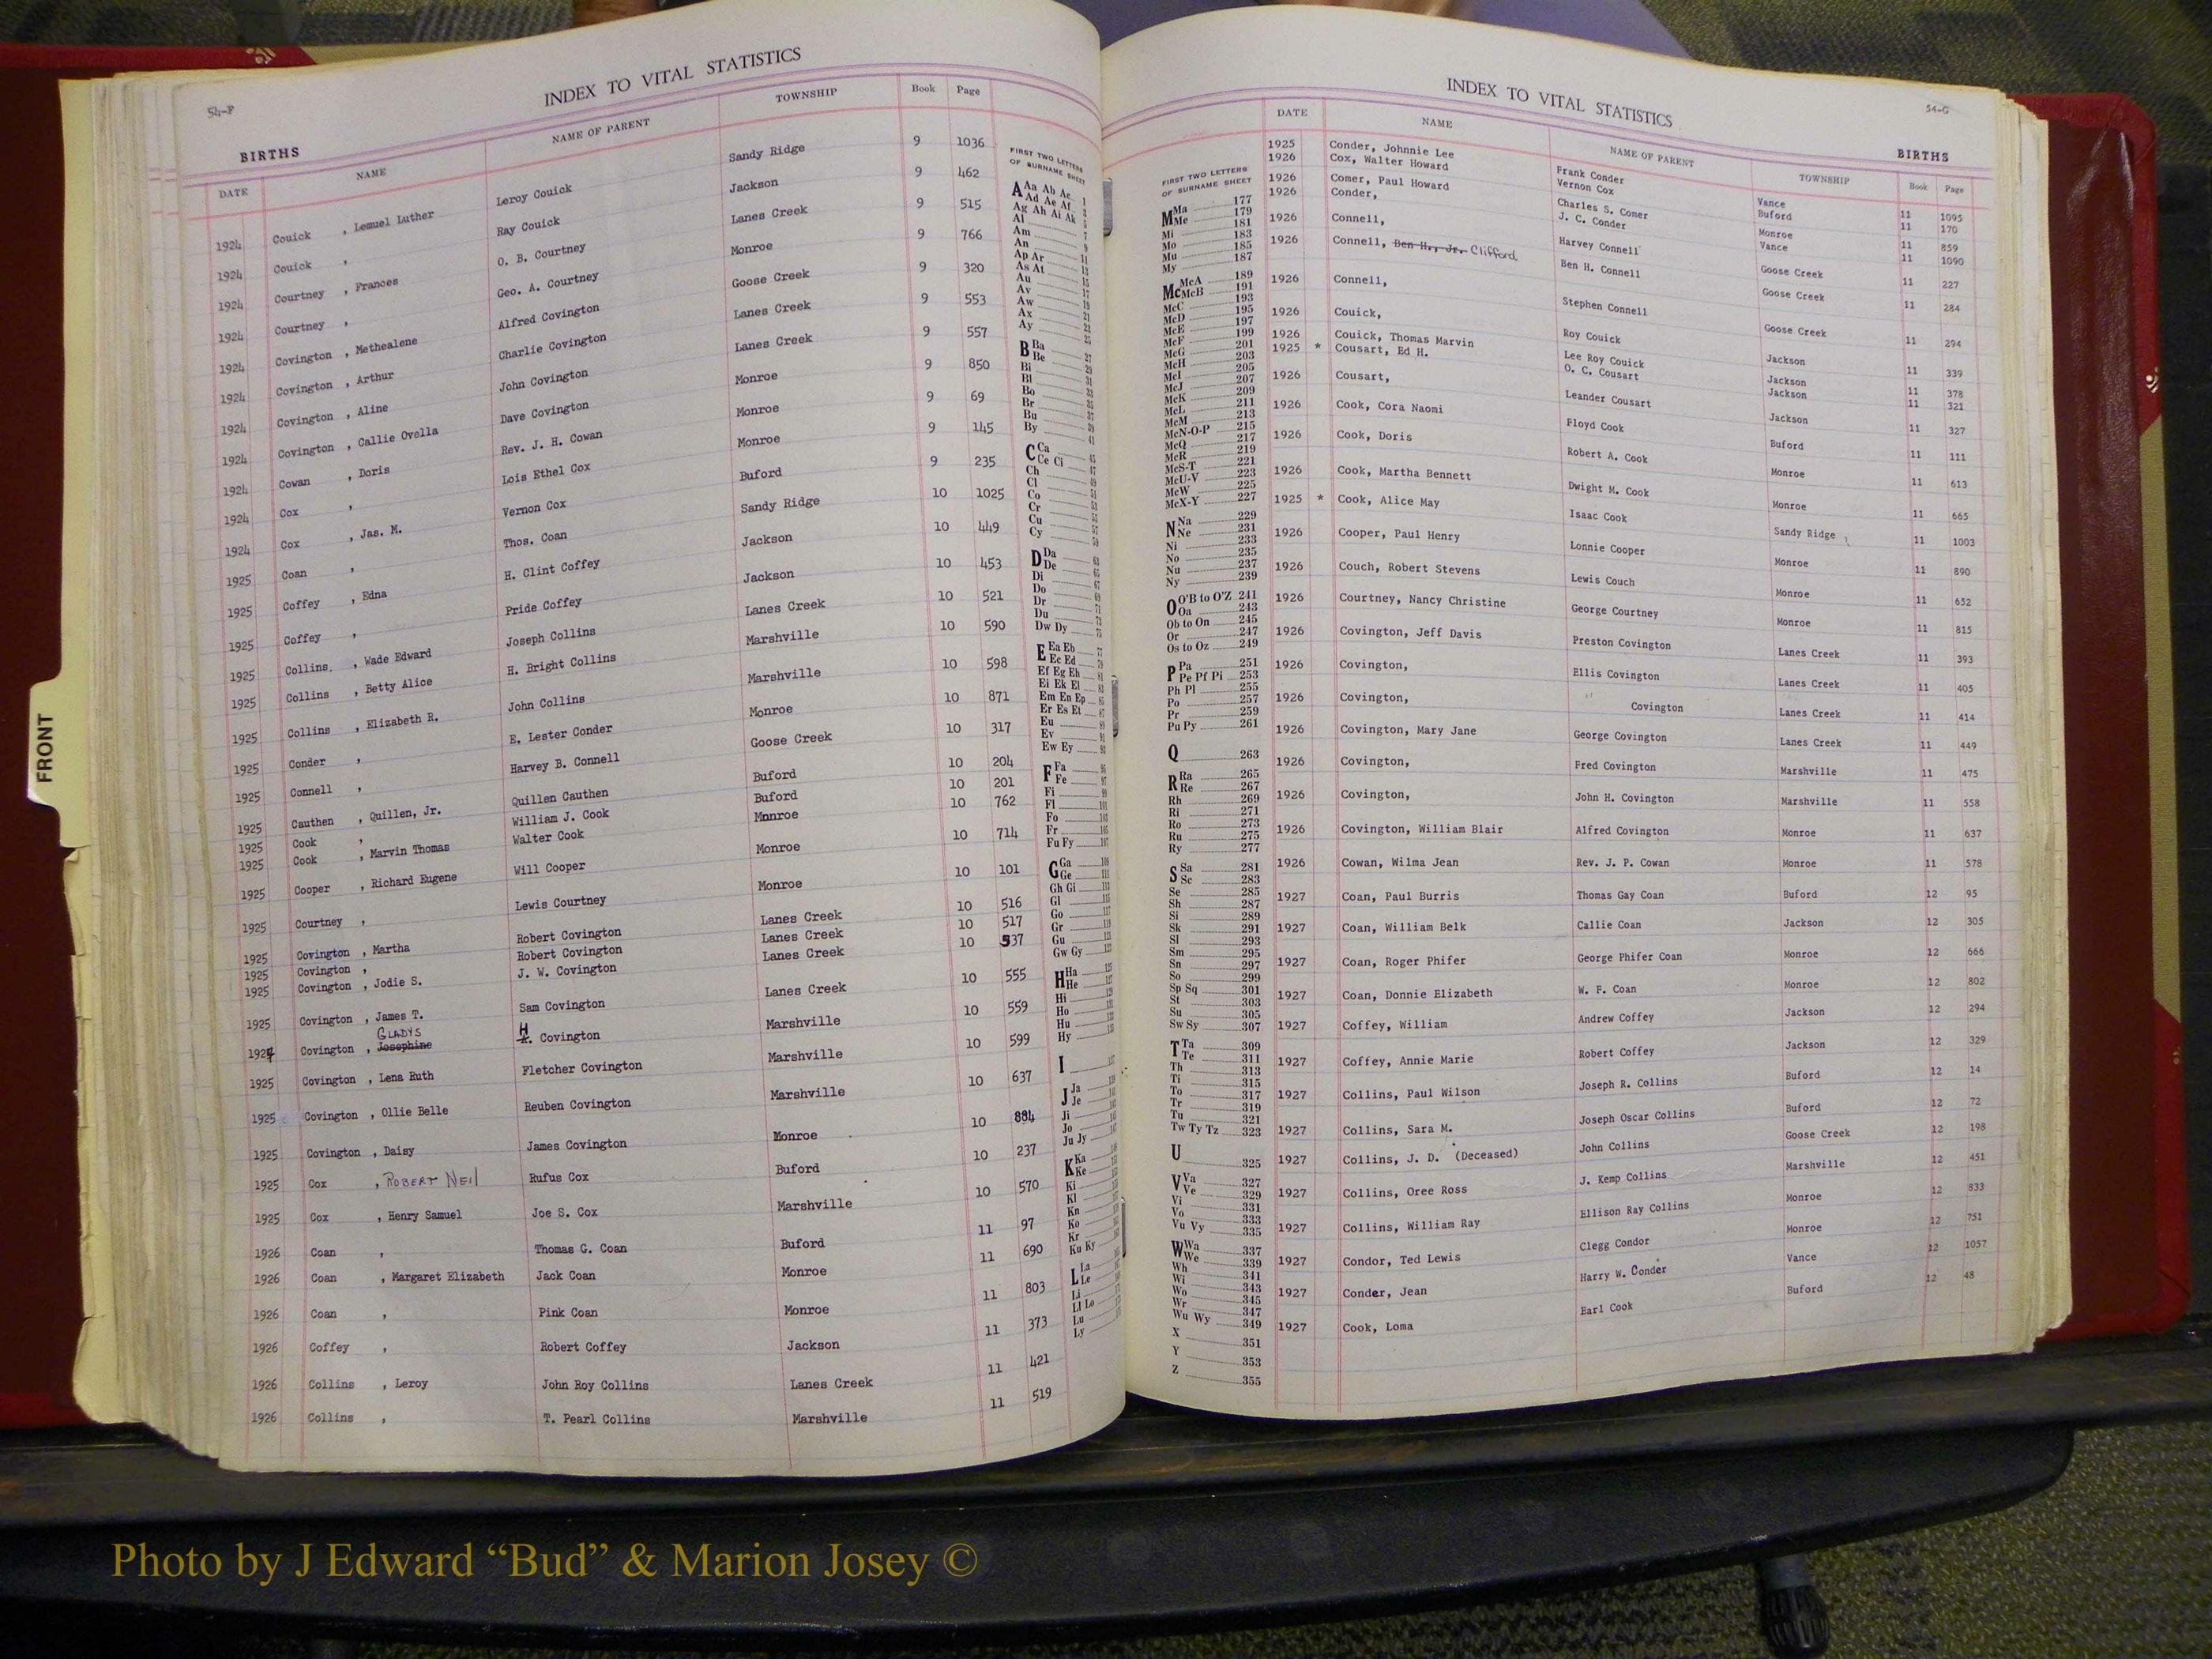 54-F
INDEX TO VITAL STATISTICS
BIRTHS
DATE NAME NAME OF PARENT TOWNSHIP Book Page
1924 Couick , Lemuel Luther Leroy Couick Sandy Ridge 9 1036
1924 Couick , Ray Couick Jackson 9 462
1924 Courtney , Frances O. B. Courtney Lanes Creek 9 515
1924 Courtney , Geo. A. Courtney Monroe 9 766
1924 Covington , Methealene Alfred Covington Goose Creek 9 320
1924 Covington , Arthur Charlie Covington Lanes Creek 9 553
1924 Covington , Aline John Covington Lanes Creek 9 557
1924 Covington , Callie Ovella Dave Covington Monroe 9 850
1924 Cowan , Doris Rev. J. H. Cowan Monroe 9 69
1924 Cox , Lois Ethel Cox Monroe 9 145
1924 Cox , Jas. M. Vernon Cox Buford 9 235
1925 Coan , Thos. Coan Sandy Ridge 10 1025
1925 Coffey , Edna H. Clint Coffey Jackson 10 449
1925 Coffey , Pride Coffey Jackson 10 453
1925 Collins. , Wade Edward Joseph Collins Lanes Creek 10 521
1925 Collins , Betty Alice H. Bright Collins Marshville 10 590
1925 Collins , Elizabeth R. John Collins Marshville 10 598
1925 Conder , E. Lester Conder Monroe 10 871
1925 Connell , Harvey B. Connell Goose Creek 10 317
1925 Cauthen , Quillen, Jr. Quillen Cauthen Buford 10 204
1925 Cook , William J. Cook Buford 10 201
1925 Cook , Marvin Thomas Walter Cook Mnnroe 10 762
1925 Cooper , Richard Eugene Will Cooper Monroe 10 714
1925 Courtney , Lewis Courtney Monroe 10 101
1925 Covington , Martha Robert Covington Lanes Creek 10 516
1925 Covington , Robert Covington Lanes Creek 10 517
1925 Covington , Jodie S. J. W. Covington Lanes Creek 10 537
1925 Covington , James T. Sam Covington Lanes Creek 10 555
GLADYS
1924 Covington , Josephine H. Covington Marshville 10 559
1925 Covington , Lena Ruth Fletcher Covington Marshville 10 599
1925 Covington , Ollie Belle Reuben Covington Marshville 10 637
1925 Covington , Daisy James Covington Monroe 10 884
1925 Cox , ROBERT NEIL Rufus Cox Buford 10 237
1925 Cox , Henry Samuel Joe S. Cox Marshville 10 570
1926 Coan , Thomas G. Coan Buford 11 97
1926 Coan , Margaret Elizabeth Jack Coan Monroe 11 690
1926 Coan , Pink Coan Monroe 11 803
1926 Coffey , Robert Coffey Jackson 11 373
1926 Collins , Leroy John Roy Collins Lanes Creek 11 421
1926 Collins , T. Pearl Collins Marshville 11 519
FIRST TWO LETTERS
OF SURNAME SHEET
A Aa Ab Ac
Ad Ae Af
Ag Ah Ai Ak
Al
Am
An
Ap Ar
As At
Au
Av
Aw
Ax
Ay
B Ba
Be
Bi
Bl
Bo
Br
Bu
By
C Ca
Ce Ci
Ch
Cl
Co
Cr
Cu
Cy
D Da
De
Di
Do
Dr
Du
Dw Dy
E Ea Eb
Ec Ed
Ef Eg Eh
Ei Ek El
Em En Ep
Er Es Et
Eu
Ev
Ew Ey
F Fa
Fe
Fi
Fl
Fo
Fr
Fu Fy
G Ga
Ge
Gh Gi
Gl
Go
Gr
Gu
Gw Gy
H Ha
He
Hi
Ho
Hu
Hy
I
J Ja
Je
Ji
Jo
Ju Jy
K Ka
Ke
Ki
Kl
Kn
Ko
Kr
Ku Ky
L La
Le
Li
Ll Lo
Lu
Ly
FRONT
INDEX TO VITAL STATISTICS
54-G
BIRTHS
FIRST TWO LETTERS
OF SURNAME SHEET
M Ma 177
Me 179
Mi 181
Mo 183
Mu 185
My 187
Mc McA 189
McB 191
McC 193
McD 195
McE 197
McF 199
McG 201
McH 203
McI 205
McJ 207
McK 209
McL 211
McM 213
McN-O-P 215
McQ 217
McR 219
McS-T 221
McU-V 223
McW 225
McX-Y 227
N Na 229
Ne 231
Ni 233
No 235
Nu 237
Ny 239
O O'B to O'Z 241
Oa 243
Ob to On 245
Or 247
Os to Oz 249
P Pa 251
Pe Pf Pi 253
Ph Pl 255
Po 257
Pr 259
Pu Py 261
Q 263
R Ra 265
Re 267
Rh 269
Ri 271
Ro 273
Ru 275
Ry 277
S Sa 281
Sc 283
Se 285
Sh 287
Si 289
Sk 291
Sl 293
Sm 295
Sn 297
So 299
Sp Sq 301
St 303
Su 305
Sw Sy 307
T Ta 309
Te 311
Th 313
Ti 315
To 317
Tr 319
Tu 321
Tw Ty Tz 323
U 325
V Va 327
Ve 329
Vi 331
Vo 333
Vu Vy 335
W Wa 337
We 339
Wh 341
Wi 343
Wo 345
Wr 347
Wu Wy 349
X 351
Y 353
Z 355
DATE NAME NAME OF PARENT TOWNSHIP Book Page
1925 Conder, Johnnie Lee Frank Conder Vance 11 1095
1926 Cox, Walter Howard Vernon Cox Buford 11 170
1926 Comer, Paul Howard Charles S. Comer Monroe 11 859
1926 Conder, J. C. Conder Vance 11 1090
1926 Connell, Harvey Connell Goose Creek 11 227
1926 Connell, Ben H., Jr. Clifford Ben H. Connell Goose Creek 11 284
1926 Connell, Stephen Connell Goose Creek 11 294
1926 Couick, Roy Couick Jackson 11 339
1926 Couick, Thomas Marvin Lee Roy Couick Jackson 11 378
1925 * Cousart, Ed H. O. C. Cousart Jackson 11 321
1926 Cousart, Leander Cousart Jackson 11 327
1926 Cook, Cora Naomi Floyd Cook Buford 11 111
1926 Cook, Doris Robert A. Cook Monroe 11 613
1926 Cook, Martha Bennett Dwight M. Cook Monroe 11 665
1925 * Cook, Alice May Isaac Cook Sandy Ridge 11 1003
1926 Cooper, Paul Henry Lonnie Cooper Monroe 11 890
1926 Couch, Robert Stevens Lewis Couch Monroe 11 652
1926 Courtney, Nancy Christine George Courtney Monroe 11 815
1926 Covington, Jeff Davis Preston Covington Lanes Creek 11 393
1926 Covington, Ellis Covington Lanes Creek 11 405
1926 Covington, Covington Lanes Creek 11 414
1926 Covington, Mary Jane George Covington Lanes Creek 11 449
1926 Covington, Fred Covington Marshville 11 475
1926 Covington, John H. Covington Marshville 11 558
1926 Covington, William Blair Alfred Covington Monroe 11 637
1926 Cowan, Wilma Jean Rev. J. P. Cowan Monroe 11 578
1927 Coan, Paul Burris Thomas Gay Coan Buford 12 95
1927 Coan, William Belk Callie Coan Jackson 12 305
1927 Coan, Roger Phifer George Phifer Coan Monroe 12 666
1927 Coan, Donnie Elizabeth W. F. Coan Monroe 12 802
1927 Coffey, William Andrew Coffey Jackson 12 294
1927 Coffey, Annie Marie Robert Coffey Jackson 12 329
1927 Collins, Paul Wilson Joseph R. Collins Buford 12 14
1927 Collins, Sara M. Joseph Oscar Collins Buford 12 72
1927 Collins, J. D. (Deceased) John Collins Goose Creek 12 198
1927 Collins, Oree Ross J. Kemp Collins Marshville 12 451
1927 Collins, William Ray Ellison Ray Collins Monroe 12 833
1927 Condor, Ted Lewis Clegg Condor Monroe 12 751
1927 Conder, Jean Harry W. Conder Vance 12 1057
1927 Cook, Loma Earl Cook Buford 12 48
Photo by J Edward “Bud” & Marion Josey ©